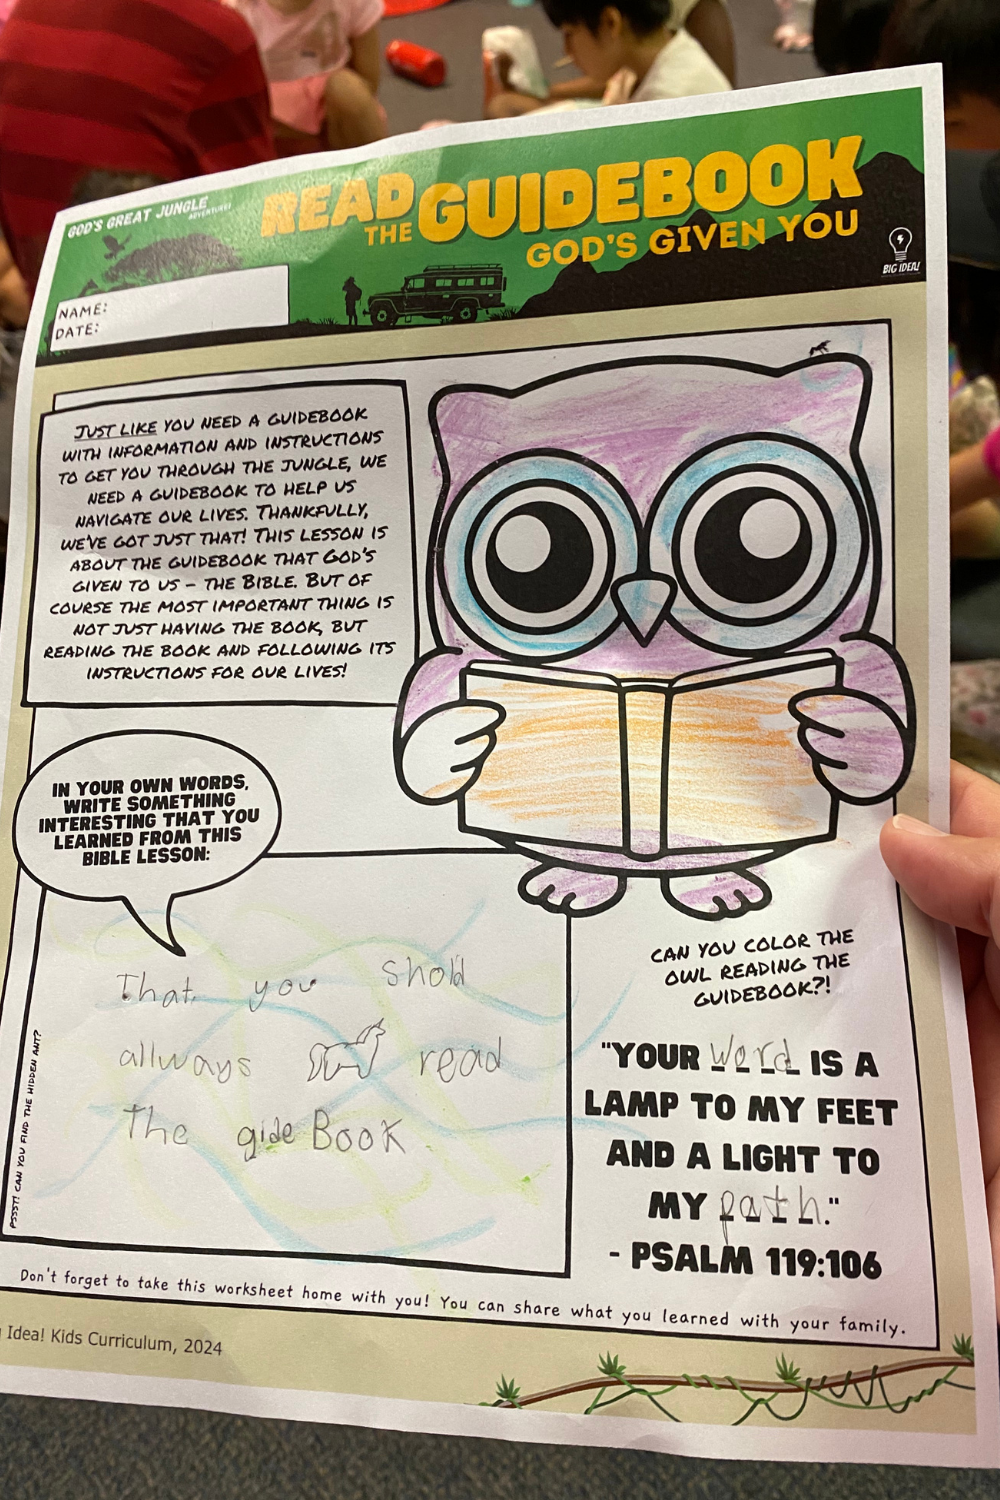 GOD'S GREAT JUNGLE
ADVENTURES
READ
THE GUIDEBOOK
GOD'S GIVEN YOU
BIG IDEA!
NAME:
DATE:
JUST LIKE YOU NEED A GUIDEBOOK
WITH INFORMATION AND INSTRUCTIONS
TO GET YOU THROUGH THE JUNGLE, WE
NEED A GUIDEBOOK TO HELP US
NAVIGATE OUR LIVES. THANKFULLY,
WE'VE GOT JUST THAT! THIS LESSON IS
ABOUT THE GUIDEBOOK THAT GOD'S
GIVEN TO US – THE BIBLE. BUT OF
COURSE THE MOST IMPORTANT THING IS
NOT JUST HAVING THE BOOK, BUT
READING THE BOOK AND FOLLOWING ITS
INSTRUCTIONS FOR OUR LIVES!
IN YOUR OWN WORDS,
WRITE SOMETHING
INTERESTING THAT YOU
LEARNED FROM THIS
BIBLE LESSON:
That you shold
allways read
The gide Book
PSSST! CAN YOU FIND THE HIDDEN ANT?
CAN YOU COLOR THE
OWL READING THE
GUIDEBOOK?!
"YOUR word IS A
LAMP TO MY FEET
AND A LIGHT TO
MY path."
- PSALM 119:106
Don't forget to take this worksheet home with you! You can share what you learned with your family.
Idea! Kids Curriculum, 2024